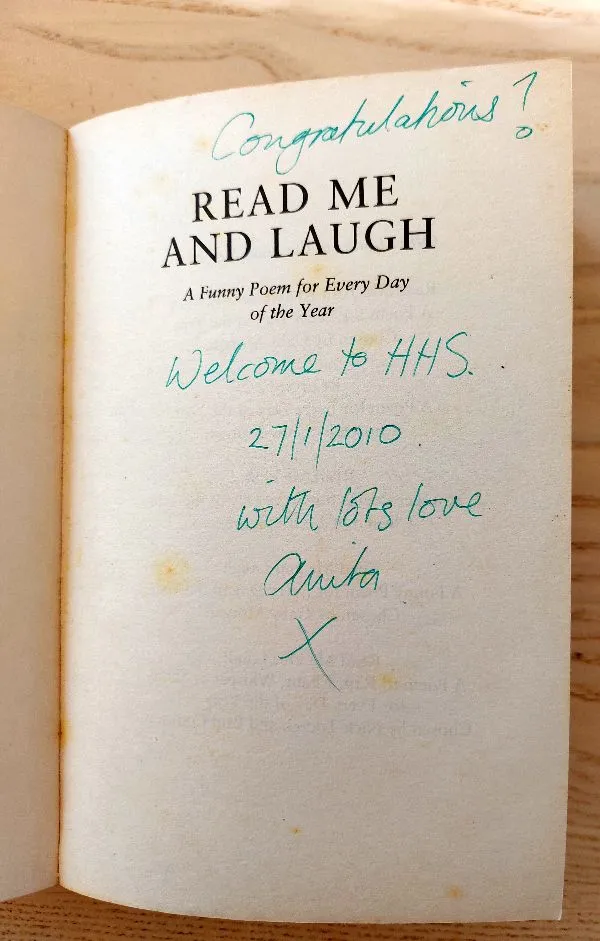 Congratulations!
READ ME
AND LAUGH
A Funny Poem for Every Day
of the Year
Welcome to HHS.
27/1/2010.
with lots love
Anita
X